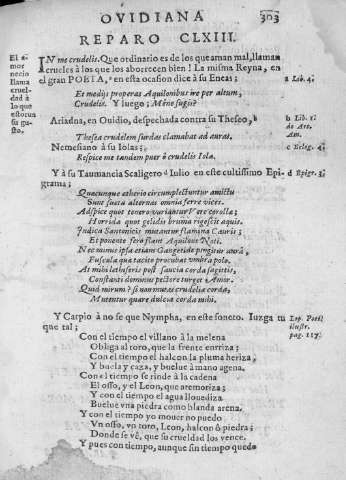 OVIDIANA
303
REPARO CLXIII.
El a-
mor
necio
llama
cruel-
dad à
lo que
estorua
su gu-
sto.
IN me crudelis. Que ordinario es de los que aman mal, llaman
crueles à los que los aborrecen bien! La misma Reyna, en
el gran POETA, en esta ocasion dice à su Eneas;
a Lib. 4.
Et medijs properas Aquilonibus ire per altum,
Crudelis. Y luego; Mène fugis?
Ariadna, en Ouidio, despechada contra su Theseo,
b Lib. 1.
de Ar.
Am.
Thesea crudelem surdas clamabat ad auras.
Nemesiano à su Iolas;
c Eclog. 4.
Respice me tandem puer ò crudelis Iola.
Y à su Taumancia Scaligero Iulio en este cultissimo Epi-
grama;
d Epigr.
Quacunque atherio circumplectuntur amictu
Sunt suata alternas omnia ferre vices.
Adspice quot tenero variantur Vere corolla;
Horrida quot gelidis bruma rigescit aquis.
Iudica Santonicis mutantur flamina Cauris;
Et ponente serũ flant Aquilone Noti.
Nec numus ipsa etiam Gangetide pingitur
Fuscula qua tacito procubat umbra polo.
At mihi lethiferis post saucia corda sagittis,
Constanti dominus pectore turget Amor.
Quid mirum? si
Mutentur quare dulcia corda mihi.
Y Carpio à no se que Nympha, en este soneto. Iuzga tu
que tal;
Lop. Poet.
ilustr.
pag. 117.
Con el tiempo el villano à la melena
Obliga al toro, que la frente enriza;
Con el tiempo el halcon la pluma heriza,
Y buela y caza, y buelue à mano agena.
Con el tiempo se rinde à la cadena
El osso, y el Leon, que atemoriza;
Y con el tiempo el agua llouediza
Buelue vna piedra como blanda arena.
Y con el tiempo yo mouer no puedo
Vn osso, vn toro, Leon, halcon ò piedra;
Donde se vè, que su crueldad los vence.
Y pues con tiempo, aunque sin tiempo quedo